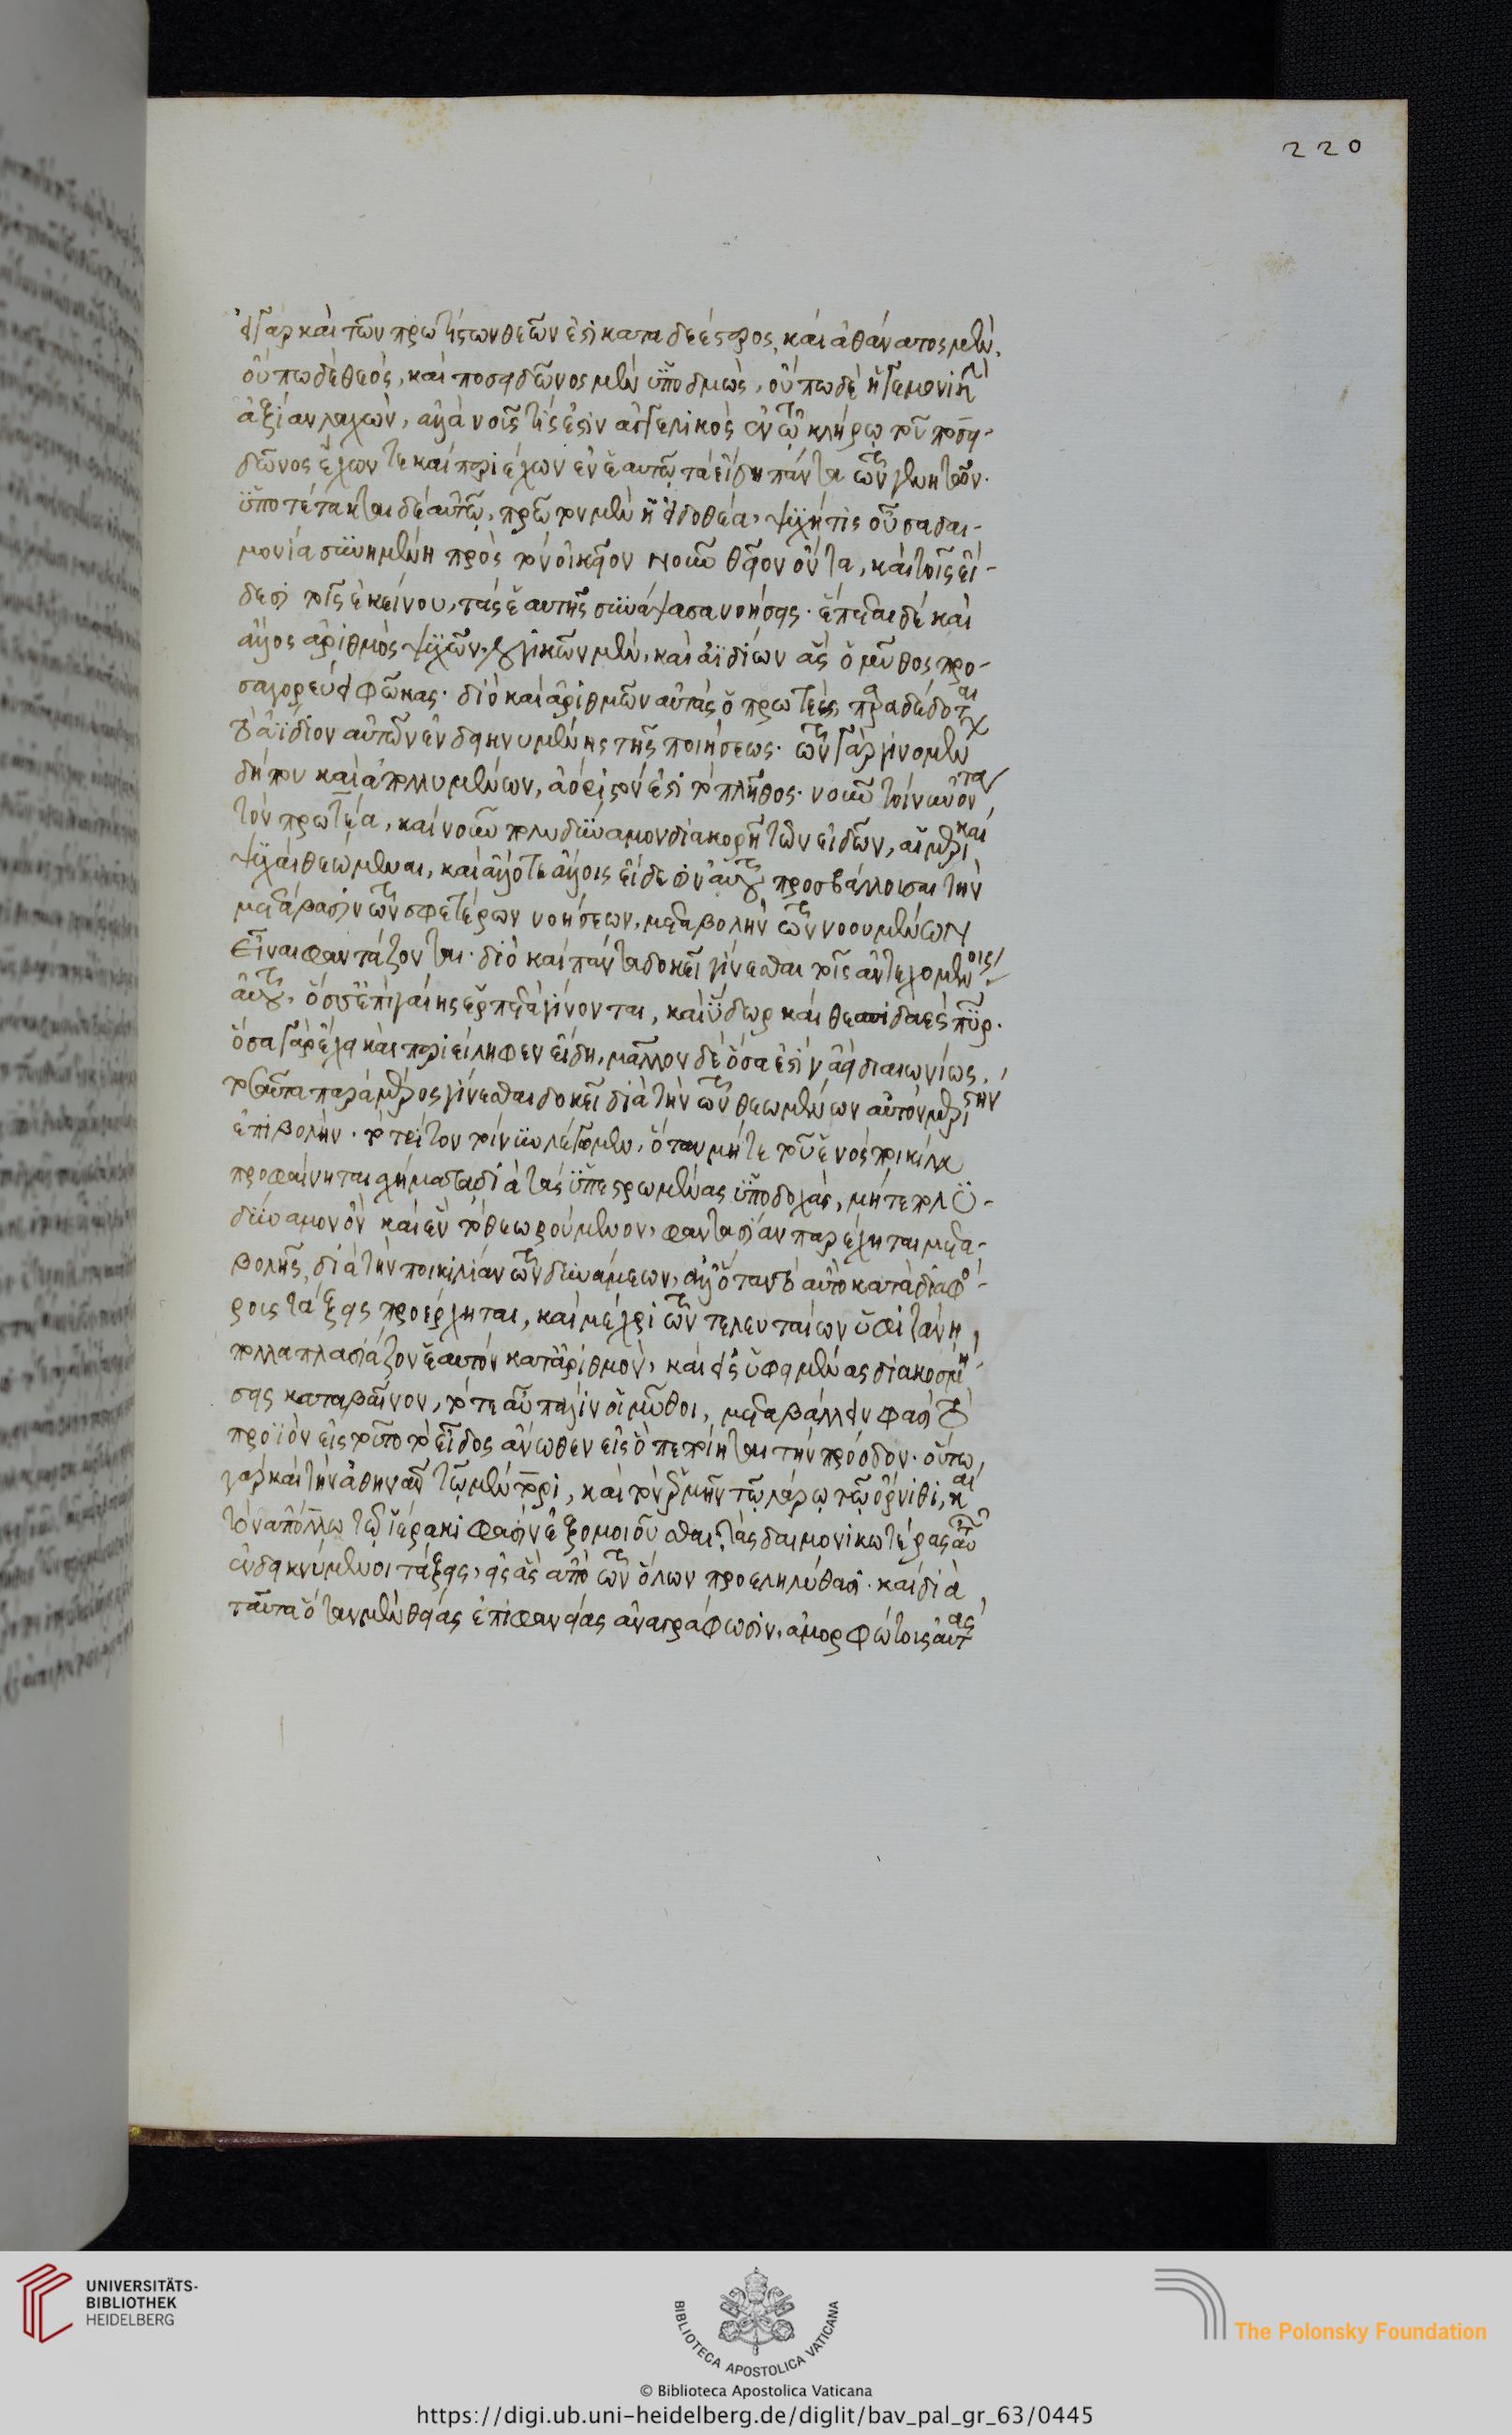 εἰ γὰρ καὶ τῶν πρωτίστων θεῶν ἐστὶ καταδεέστερος, καὶ ἀθάνατος μὲν,
οὔπω δὲ θεὸς, καὶ ποσειδῶνος μὲν ὑποδμὼς, οὔπω δὲ ἡγεμονικὴν
ἀξίαν λαχὼν, ἀλλὰ νοῦς τίς ἐστὶν ἀγγελικὸς ἐν τῷ κλήρῳ τοῦ ποσει-
δῶνος ἔχων τε καὶ περιέχων ἐν ἑαυτῷ τὰ εἴδη πάντα τῶν γενητῶν.
ὑποτέτακται δὲ αὐτῷ, πρῶτον μὲν ἡ εἰδοθέα, ψυχή τις οὖσα δαι-
μονία συνημμένη πρὸς τὸν οἰκεῖον νοῦν θεῖον ὄντα, καὶ τοῖς εἴ-
δεσι τοῖς ἐκείνου, τὰς ἑαυτῆς συνάψασα νοήσεις. ἕπεται δὲ καὶ
ἄλλος ἀριθμὸς ψυχῶν, λογικῶν μὲν, καὶ ἀϊδίων ἃς ὁ μῦθος προ-
σαγορεύει φώκας. διὸ καὶ ἀριθμῶν αὐτὰς ὁ πρωτεὺς παραδέδοται
τὸ ἀΐδιον αὐτῶν ἐνδεικνυμένης τῆς ποιήσεως. τῶν γὰρ γινομένων
δήπου καὶ ἀπολλυμένων, ἀόριστόν ἐστι τὸ πλῆθος. νοῦν τοίνυν ὄντα
τὸν πρωτέα, καὶ νοῦν πολυδύναμον διακορῆ τῶν εἰδῶν, αἱ μερικαὶ
ψυχαὶ θεώμεναι, καὶ ἄλλοτε ἄλλοις εἴδεσιν αὐτοῦ προσβάλλουσαι τὴν
μετάβασιν τῶν σφετέρων νοήσεων, μεταβολὴν τῶν νοουμένων
εἶναι φαντάζονται. διὸ καὶ πάντα δοκεῖ γίνεσθαι τοῖς ἀντεχομένοις
αὐτοῦ, ὅσσ' ἐπὶ γαίης ἑρπετὰ γίνονται, καὶ ὕδωρ καὶ θεσπιδαὲς πῦρ.
ὅσα γὰρ ἔχει καὶ περιείληφεν εἴδη, μᾶλλον δὲ ὅσα ἐστὶν ἀεὶ διαιωνίως,
τοιαῦτα παρὰ μέρος γίνεσθαι δοκεῖ διὰ τὴν τῶν θεωμένων αὐτὸν μεριστὴν
ἐπιβολήν. τὸ τρίτον τοίνυν λέγομεν, ὅταν μήτε τοῦ ἑνὸς ποικίλα
προφαίνηται σχήματα διὰ τὰς ὑπεστρωμένας ὑποδοχὰς, μήτε πολυ-
δύναμον ὂν καὶ ἓν τὸ θεωρούμενον, φαντασίαν παρέχηται μετα-
βολῆς, διὰ τὴν ποικιλίαν τῶν δυνάμεων, ἀλλ' ὅταν τὸ αὐτὸ κατὰ διαφό-
ρους τάξεις προέρχηται, καὶ μέχρι τῶν τελευταίων ὑφιζάνῃ,
πολλαπλασιάζον ἑαυτὸ κατ' ἀριθμὸν, καὶ εἰς ὑφειμένας διακοσμή-
σεις καταβαῖνον, τότε αὖ πάλιν οἱ μῦθοι, μεταβάλλειν φασὶ τὸ
προϊὸν εἰς τοῦτο τὸ εἶδος ἄνωθεν εἰς ὅπερ ποιῆται τὴν πρόοδον. οὕτω
γὰρ καὶ τὴν ἀθηνᾶν τῷ μέντορι, καὶ τὸν ἑρμῆν τῷ λάρῳ τῷ ὄρνιθι, καὶ
τὸν ἀπόλλω τῷ ἱέρακι φασὶν ἐξομοιοῦσθαι, τὰς δαιμονικωτέρας αὐτῶν
ἐνδεικνύμενοι τάξεις, εἰς ἃς ἀπὸ τῶν ὅλων προεληλύθασι. καὶ διὰ
ταῦτα ὅταν μὲν θείας ἐπιφανείας ἀναγράφωσιν, ἀμορφώτους αὐτὰς
220
UNIVERSITÄTS-
BIBLIOTHEK
HEIDELBERG
BIBLIOTECA APOSTOLICA VATICANA
The Polonsky Foundation
© Biblioteca Apostolica Vaticana
https://digi.ub.uni-heidelberg.de/diglit/bav_pal_gr_63/0445